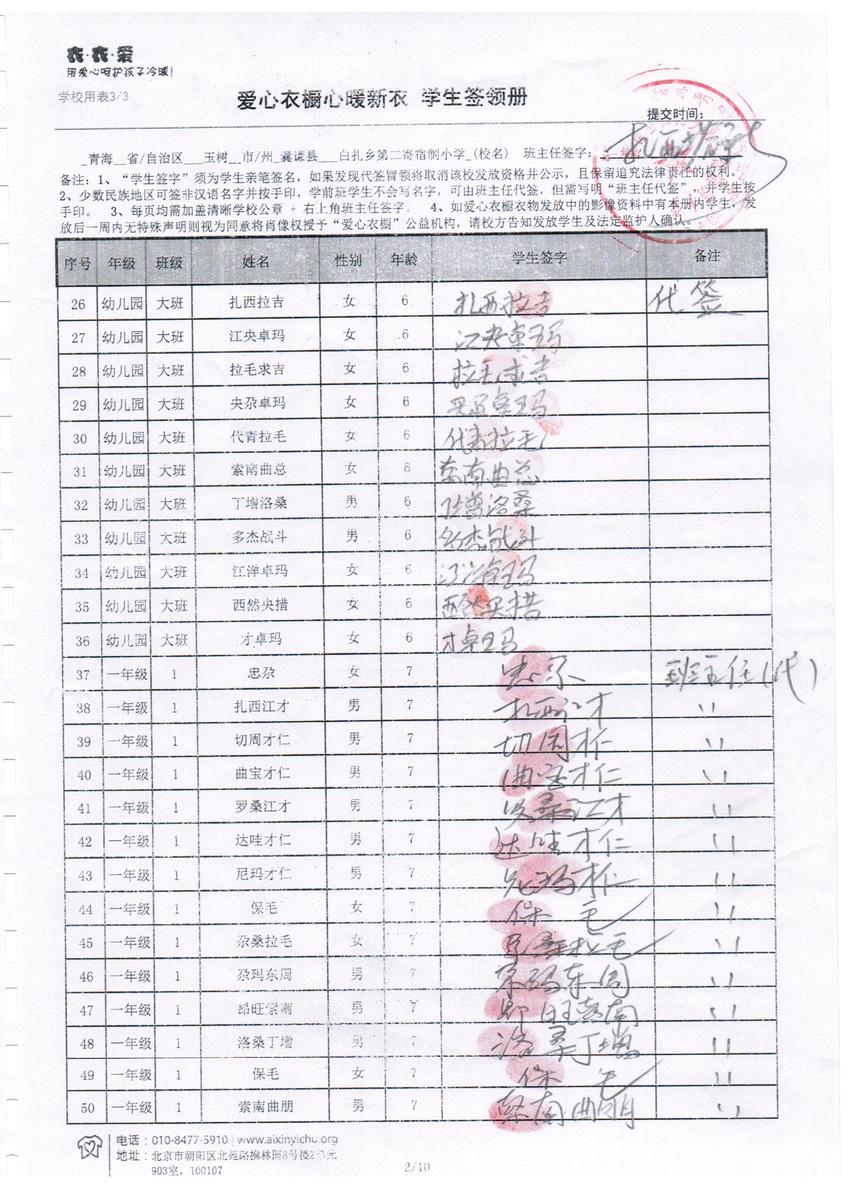 衣·衣·爱
用爱心呵护孩子冷暖!
学校用表3/3
爱心衣橱心暖新衣 学生签领册
提交时间:
_青海__省/自治区___玉树__市/州_囊谦县___白扎乡第二寄宿制小学_(校名) 班主任签字:
备注:1、“学生签字”须为学生亲笔签名,如果发现代签冒领将取消该校发放资格并公示,且保留追究法律责任的权利。
2、少数民族地区可签非汉语名字并按手印,学前班学生不会写名字,可由班主任代签,但需写明“班主任代签”,并学生按
手印。 3、每页均需加盖清晰学校公章 + 右上角班主任签字。 4、如爱心衣橱衣物发放中的影像资料中有本册内学生,发
放后一周内无特殊声明则视为同意将肖像权授予“爱心衣橱”公益机构,请校方告知发放学生及法定监护人确认。
序号 年级 班级 姓名 性别 年龄 学生签字 备注
26 幼儿园 大班 扎西拉吉 女 6 扎西拉吉 代签
27 幼儿园 大班 江央卓玛 女 6 江央卓玛
28 幼儿园 大班 拉毛求吉 女 6 拉毛求吉
29 幼儿园 大班 央尕卓玛 女 6 央尕卓玛
30 幼儿园 大班 代青拉毛 女 6 代青拉毛
31 幼儿园 大班 索南曲总 女 6 索南曲总
32 幼儿园 大班 丁增洛桑 男 6 丁增洛桑
33 幼儿园 大班 多杰战斗 男 6 多杰战斗
34 幼儿园 大班 江洋卓玛 女 6 江洋卓玛
35 幼儿园 大班 西然央措 女 6 西然央措
36 幼儿园 大班 才卓玛 女 6 才卓玛
37 一年级 1 忠尕 女 7 忠尕 班主任(代)
38 一年级 1 扎西江才 男 7 扎西江才 〃
39 一年级 1 切周才仁 男 7 切周才仁 〃
40 一年级 1 曲宝才仁 男 7 曲宝才仁 〃
41 一年级 1 罗桑江才 男 7 罗桑江才 〃
42 一年级 1 达哇才仁 男 7 达哇才仁 〃
43 一年级 1 尼玛才仁 男 7 尼玛才仁 〃
44 一年级 1 保毛 女 7 保毛 〃
45 一年级 1 尕桑拉毛 女 7 尕桑拉毛 〃
46 一年级 1 尕玛东周 男 7 尕玛东周 〃
47 一年级 1 昂旺索南 男 7 昂旺索南 〃
48 一年级 1 洛桑丁增 男 7 洛桑丁增 〃
49 一年级 1 保毛 女 7 保毛 〃
50 一年级 1 索南曲朋 男 7 索南曲朋 〃
电话:010-8477-5910 | www.aixinyichu.org
地址:北京市朝阳区北苑路拂林园8号楼2单元
903室,100107
2/10